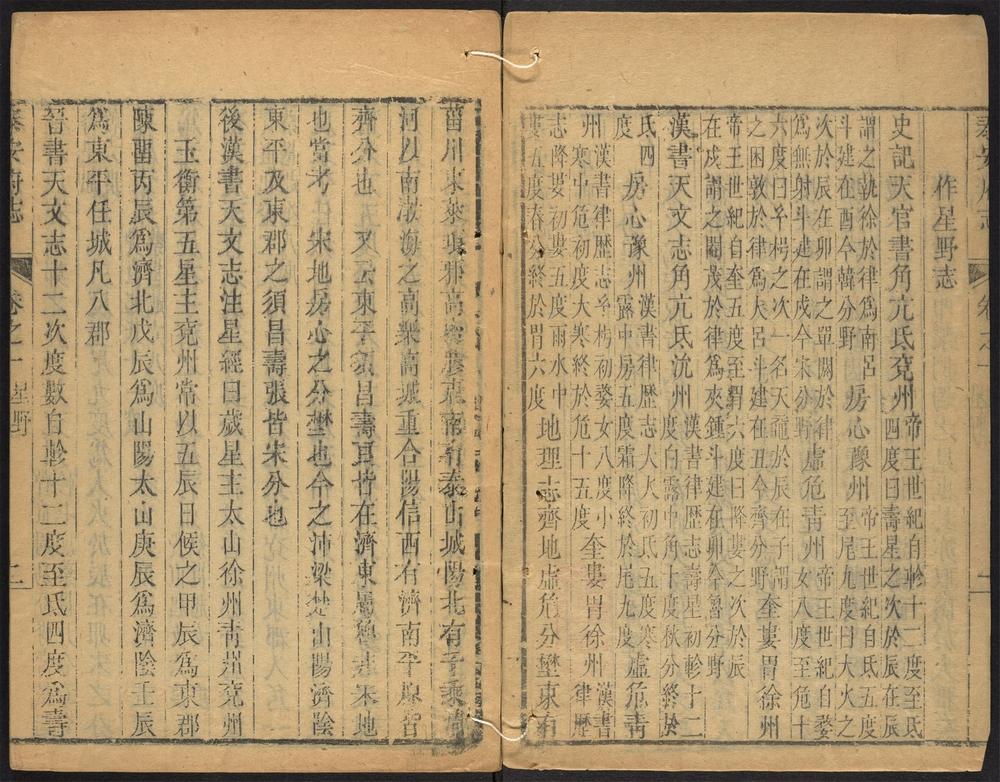 泰安府志
卷之一
一
作星野志
史記天官書角亢氐兗州帝王世紀自軫十二度至氐
四度曰壽星之次於辰在辰
謂之執徐於律爲南呂
斗建在酉今韓分野
房心豫州帝王世紀自氐五度
至尾九度曰大火之
次於辰在卯謂之單閼於律
爲無射斗建在戌今宋分野
虛危青州帝王世紀自婺
女八度至危十
六度曰予枵之次一名天黿於辰在子謂
之困敦於律爲大呂斗建在丑今齊分野
奎婁胃徐州
帝王世紀自奎五度至胃六度曰降婁之次於辰
在戌謂之閹茂於律爲夾鍾斗建在卯今魯分野
漢書天文志角亢氐沇州漢書律歷志壽星初軫十二
度白露中角十度秋分終於
氐四
度
房心豫州漢書律歷志大火初氐五度寒
露中房五度霜降終於尾九度
虛危青
州漢書律歷志予枵初婺女八度小
寒中危初度大寒終於危十五度
奎婁胃徐州漢書
律歷
志降婁初婁五度雨水中
婁五度春分終於胃六度
地理志齊地虛危分壄東有
菑川東萊琅邪高密膠東南有泰山城陽北有千乘清
河以南渤海之高樂高城重合陽信西有濟南平原皆
齊分也 又云東平須昌壽張皆在濟東屬魯非宋地
也當考 宋地房心之分壄也今之沛梁楚山陽濟陰
東平及東郡之須昌壽張皆宋分也
後漢書天文志注星經曰歲星主太山徐州靑州兗州
玉衡第五星主兗州常以五辰日候之甲辰爲東郡
陳留丙辰爲濟北戊辰爲山陽太山庚辰爲濟陰壬辰
爲東平任城凡八郡
晉書天文志十二次度數自軫十二度至氐四度爲壽
泰安府志
卷之一
星野
二